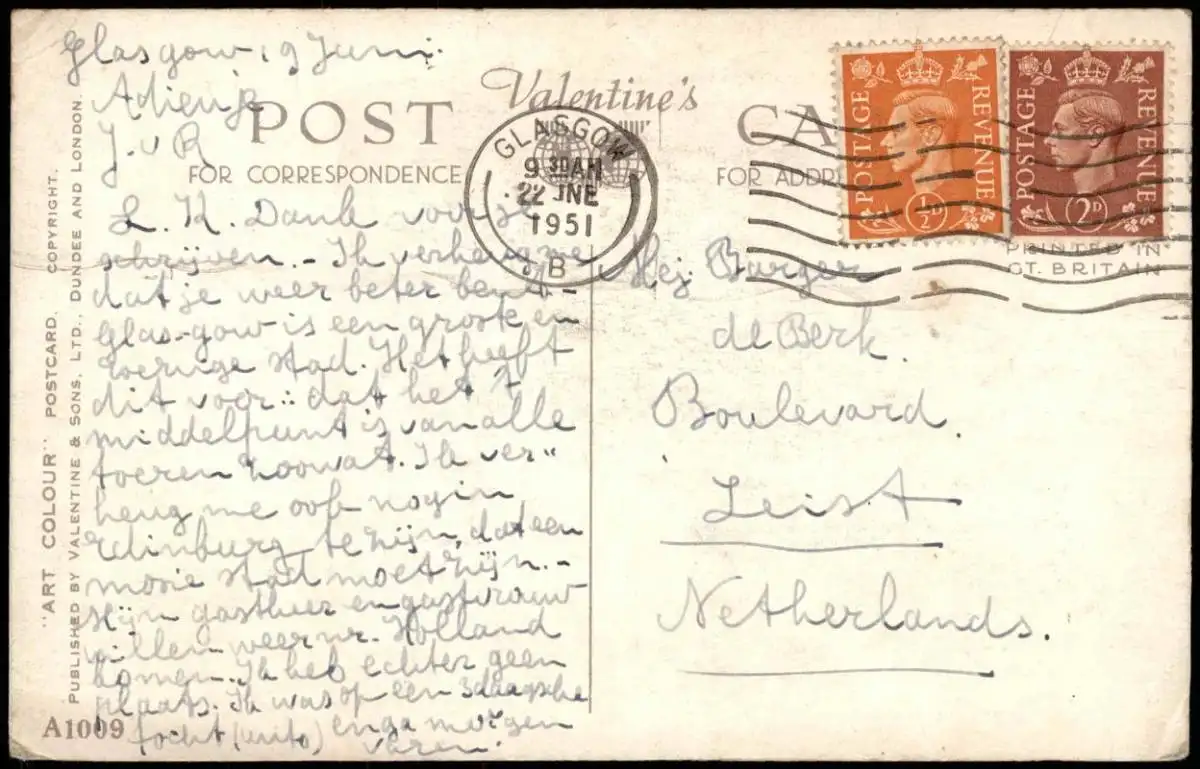 Glasgow 19 Juni.
Adieu
J. v R
POST
CA
Valentine's
FOR CORRESPONDENCE
FOR ADDRE
GLASGOW
9 30 AM
22 JNE
1951
B
POSTAGE REVENUE
½D
POSTAGE REVENUE
2D
PRINTED IN
GT. BRITAIN
L. K. Dank voor je
schrijven. - Ik verheug me
dat je weer beter bent -
Glas-gow is een groote en
roerige stad. Het heeft
dit voor: dat het 't
middelpunt is van alle
toeren zoowat. Ik ver"
heug me ook nog in
Edinburg te zijn, dat een
mooie stad moet zijn. -
Mijn gastheer en gastvrouw
willen weer nr. Holland
komen. Ik heb echter geen
plaats. Ik was op een 3daagsche
tocht (auto) en ga morgen
varen.
Mej. Burger
de Berk.
Boulevard.
Zeist
Netherlands.
"ART COLOUR" POSTCARD. COPYRIGHT.
PUBLISHED BY VALENTINE & SONS, LTD., DUNDEE AND LONDON.
A1009